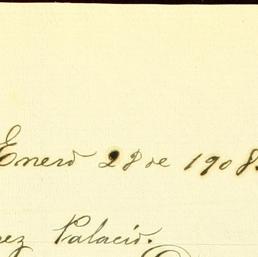 Enero 28 de 1908.
rez Palacio.